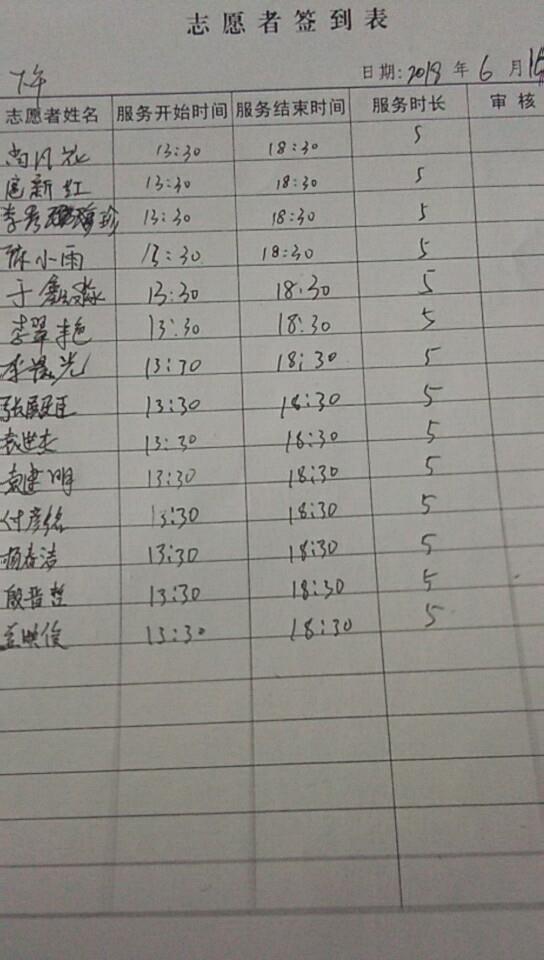 志愿者签到表
下午
日期: 2018 年 6 月
志愿者姓名 服务开始时间 服务结束时间 服务时长 审核
13:30 18:30 5
扈新红 13:30 18:30 5
13:30 18:30 5
陈小雨 13:30 18:30 5
于鑫淼 13:30 18:30 5
李翠艳 13:30 18:30 5
李晨光 13:30 18:30 5
张殿臣 13:30 18:30 5
袁世杰 13:30 18:30 5
袁建明 13:30 18:30 5
付彦铭 13:30 18:30 5
杨春洁 13:30 18:30 5
殷晋哲 13:30 18:30 5
孟映俊 13:30 18:30 5